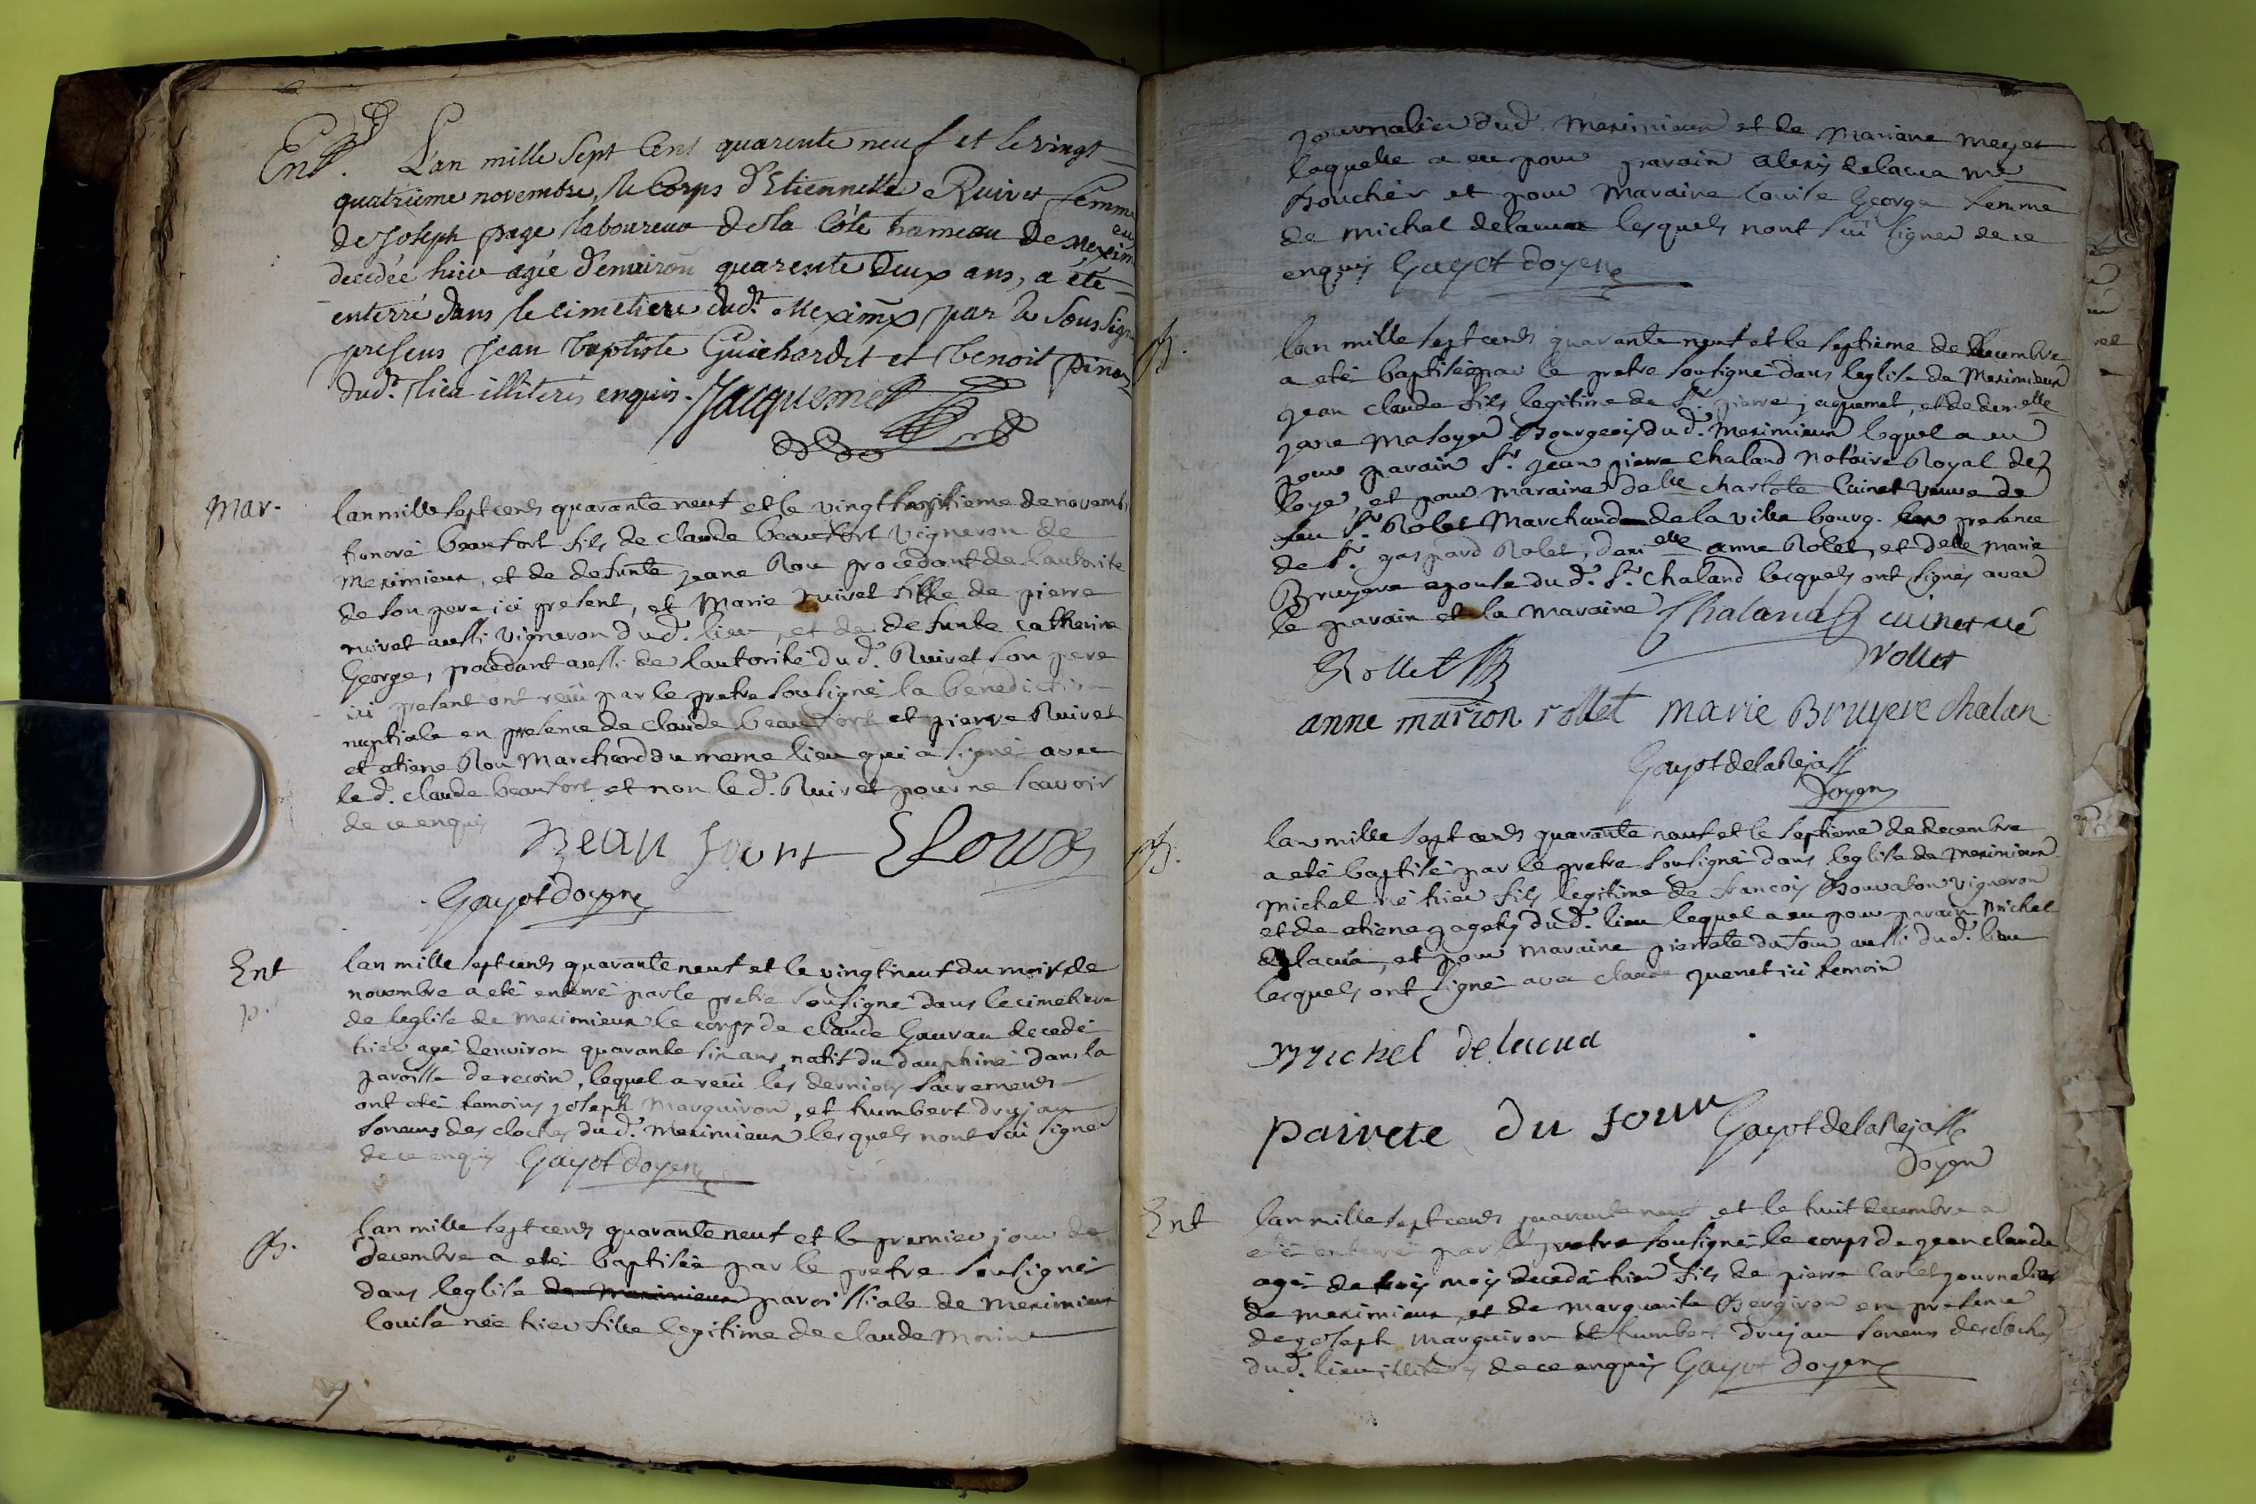 Ent. L'an mille sept cens quarente neuf et le vingt
quatrieme novembre, le Corps d'Etiennette Ruivet femme
de Joseph page laboureur de la Côte hameau de Mexim eu
decedée hier agée d'environ quarente deux ans, a été
enterré dans le cimetiere dud.t Meximx par le soussigné
presens Jean baptiste Guichardet et benoit
dud.t lieu illiterés enquis. Jacquemet
Mar. lan mille sept cents quarante neuf et le vingt de novemb
honoré beaufort fils de claude beaufort vigneron de
meximieux, et de defunte jeane Rou procedant de lautorité
de son pere ici present, et Marie ruivet fille de pierre
ruivet aussi vigneron dud. lieu, et de defunte catherine
George, procedant aussi de lautorité dud. Ruivet son pere
ici present ont reçu par le pretre sousigné la benediction
nuptiale en presence de claude beaufort et pierre Ruivet
et etiene Rou Marchand du meme lieu qui a signé avec
le d. claude beaufort et non le d. Ruivet pour ne scavoir
de ce enquis Beau fourt E Roux
Gayot doyen
Ent lan mille sept cents quarante neuf et le vingt neuf du mois de
p. novembre a eté enterré par le pretre sousigné dans le cimetiere
de leglise de meximieux le corps de claude Gauvau decedé
hier agé denviron quarante six ans, natif du dauphiné dans la
paroisse de recoin, lequel a reçu les derniers sacrements
ont eté temoins joseph Marguiron, et humbert drujau
soneurs des cloches dud. Meximieux lesquels nont sçu signer
de ce enquis Gayot doyen
B. lan mille sept cents quarante neuf et le premier jour de
decembre a eté baptisée par le pretre sousigné
dans leglise de Meximieux paroissiale de meximieux
louise née hier fille legitime de claude Morin
journalier dud. Meximieux et de Mariane Meyer
laquelle a eu pour parain alexis delacua me
Boucher et pour Maraine louise George femme
de Michel delacua lesquels nont sçu signer de ce
enquis Gayot doyen
B. lan mille sept cents quarante neuf et le septieme de decembre
a eté baptisé par le pretre sousigné dans leglise de Meximieux
jean claude fils legitime de Sr. pierre jaquemet, et de demelle
jeane Masoyer Bourgeois dud. Meximieux lequel a eu
pour parain Sr. jean pierre chaland Notaire Royal de
loye, et pour maraine delle charlote Cuinet veuve de
feu Sr. Rolet Marchand de la ville bourg. en presence
de Sr. gaspard Rolet, demelle anne Rolet, et delle Marie
Bruyere epouse dud. Sr. Chaland lesquels ont signés avec
le parain et la maraine Chaland cuinet vé
Rollet rollet
anne marion rollet marie Bruyere chalan
Gayot de la Rejasse
doyen
B. lan mille sept cents quarante neuf et le septieme de decembre
a eté baptisé par le pretre sousigné dans leglise de Meximieux
Michel né hier fils legitime de francois Bouvason vigneron
et de etiene dud. lieu lequel a eu pour parain Michel
delacua, et pour maraine pierrete dufour aussi dud. lieu
lesquels ont signé avec claude quenet ici temoin
michel delacua
pairete du four Gayot de la Rejasse
doyen
Ent lan mille sept cents quarante neuf et le huit decembre a
eté enterré par le pretre sousigné le corps de jean claude
agé de trois mois decedé hier fils de pierre Carlet journalier
de meximieux, et de Marguerite Bergiron en presence
de joseph Marguiron et humbert drujau soneurs des cloches
dud. lieu illiterés de ce enquis Gayot doyen